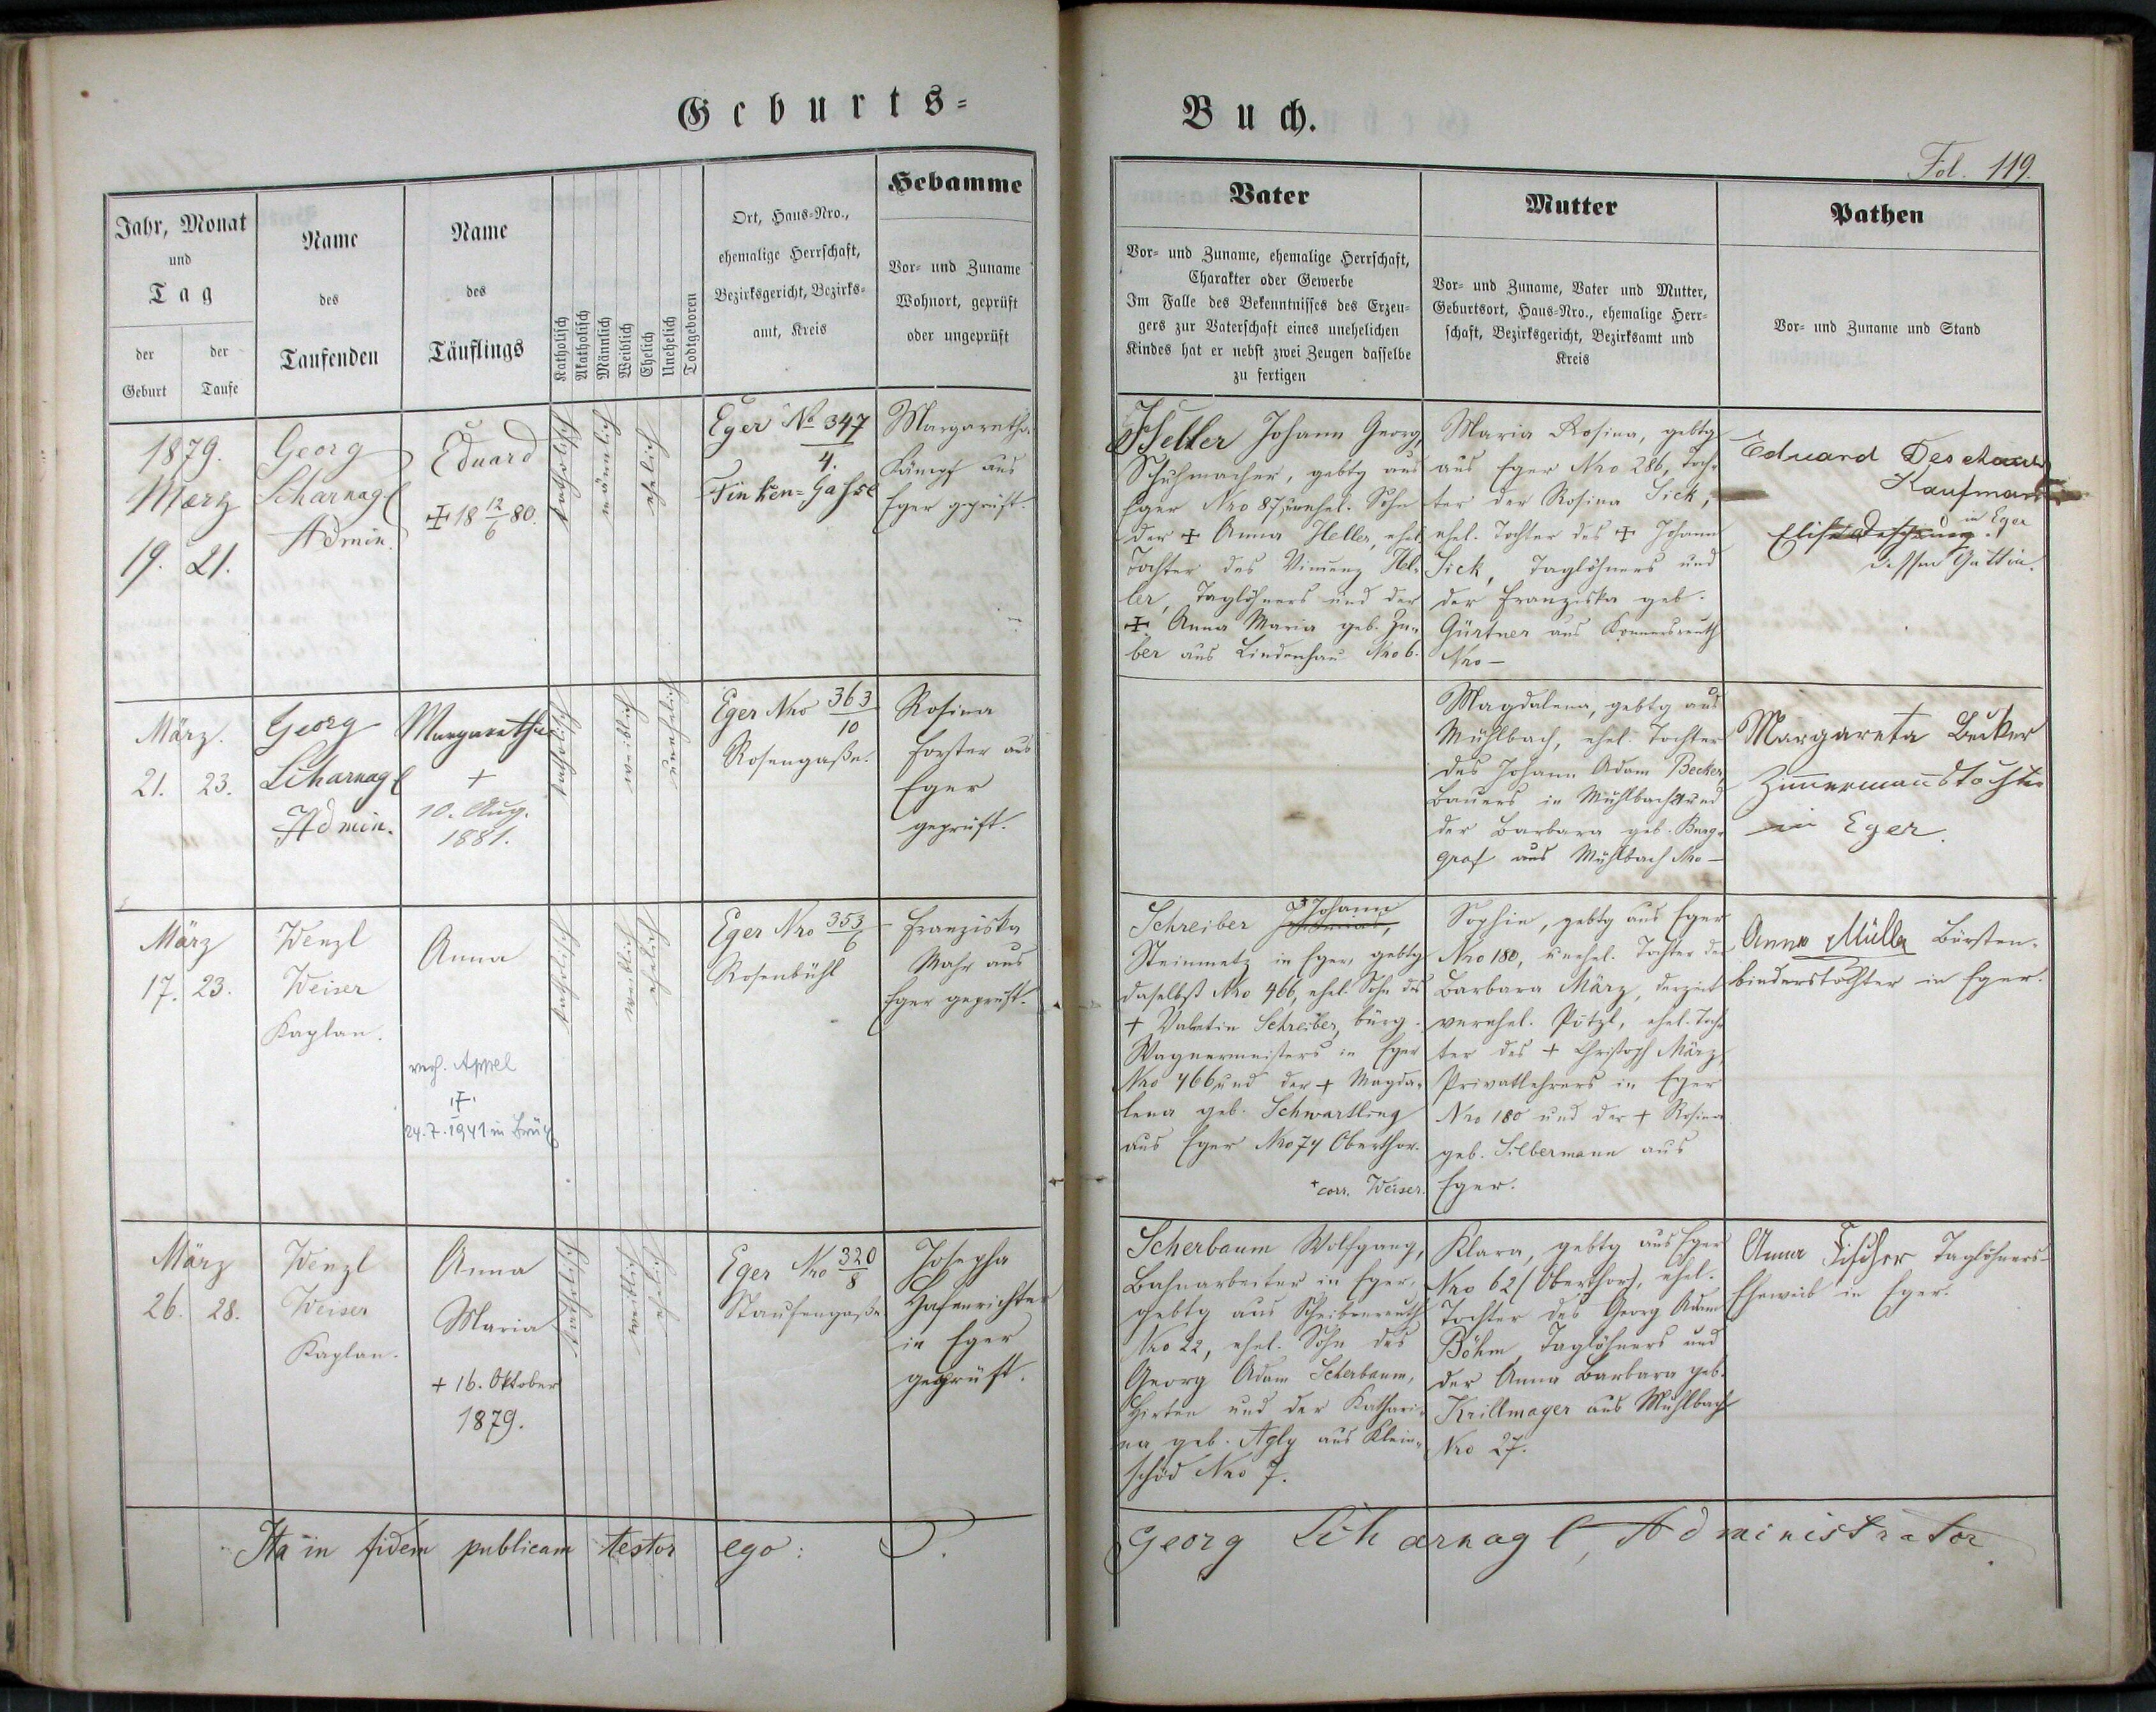 Geburts=
Buch.
Fol. 119.
Jahr, Monat
und
Tag
der
Geburt
der
Taufe
Name
des
Taufenden
Name
des
Täuflings
Katholisch
Akatholisch
Männlich
Weiblich
Ehelich
Unehelich
Todtgeboren
Ort, Haus=Nro.,
ehemalige Herrschaft,
Bezirksgericht, Bezirks=
amt, Kreis
Hebamme
Vor= und Zuname
Wohnort, geprüft
oder ungeprüft
Vater
Vor= und Zuname, ehemalige Herrschaft,
Charakter oder Gewerbe
Im Falle des Bekenntnisses des Erzeu=
gers zur Vaterschaft eines unehelichen
Kindes hat er nebst zwei Zeugen dasselbe
zu fertigen
Mutter
Vor= und Zuname, Vater und Mutter,
Geburtsort, Haus=Nro., ehemalige Herr=
schaft, Bezirksgericht, Bezirksamt und
Kreis
Pathen
Vor= und Zuname und Stand
1879.
Maerz
19. 21.
Georg
Scharnagl
Admin.
Eduard
✠ 18 12/6 80.
katholisch
männlich
ehelich
Eger No 347/4.
Finken=Gasse
Margaretha
Kämpf aus
Eger geprüft.
Heller Johann Georg,
Schuhmacher, gebtg aus
Eger Nro 87, unehel. Sohn
der ✠ Anna Heller, ehel.
Tochter des Vinzenz Hel=
ler, Taglöhners und der
✠ Anna Maria geb. Zu=
ber aus Lindenhau Nro 6.
Maria Rosina, gebtg
aus Eger Nro 286, Toch=
ter der Rosina Sick,
ehel. Tochter des ✠ Johann
Sick, Taglöhners und
der Franziska geb.
Gürtner aus Konnersreuth
Nro —
Eduard
Kaufmann
in Eger
dessen Gattin.
März.
21. 23.
Georg
Scharnagl
Admin.
Margaretha
+
10. Aug.
1881.
katholisch
weiblich
unehelich
Eger Nro 363/10
Rosengaße.
Rosina
Forster aus
Eger
geprüft.
Magdalena, gebtg aus
Mühlbach, ehel. Tochter
des Johann Adam Becker,
Bauers in Mühlbach und
der Barbara geb. Burg=
graf aus Mühlbach Nro —
Margareta Becker
Zimmermannstochter
in Eger.
März
17. 23.
Wenzl
Weiser
Kaplan.
Anna
verh. Appel
✝
24.7.1941 in Brüx
katholisch
weiblich
ehelich
Eger Nro 353/6
Rosenbühl
Franziska
Mahr aus
Eger geprüft.
Schreiber + Johann,
Steinmetz in Eger, gebtg
daselbst Nro 466, ehel. Sohn des
+ Valentin Schreiber, bürg.
Wagnermeisters in Eger
Nro 466 und der + Magda=
lena geb. Schwartling
aus Eger Nro 74 Oberthor.
+ corr. Weiser.
Sophie, gebtg aus Eger
Nro 180, unehel. Tochter der
Barbara März, derzeit
verehel. Pötzl, ehel. Toch
ter des + Christoph März,
Privatlehrers in Eger
Nro 180 und der + Rosina
geb. Silbermann aus
Eger.
Anna Müller Bürsten=
binderstochter in Eger.
März
26. 28.
Wenzl
Weiser
Kaplan.
Anna
Maria
+ 16. Oktober
1879.
katholisch
weiblich
ehelich
Eger Nro 320/8
Staufengaße
Josepha
Hafenrichter
in Eger
geprüft.
Scherbaum Wolfgang,
Bahnarbeiter in Eger,
gebtg aus Scheibenreuth
Nro 22, ehel. Sohn des
Georg Adam Scherbaum,
Hirten und der Kathari=
na geb. Agly aus Klein=
schüd Nro 7.
Klara, gebtg aus Eger
Nro 62 (Oberthor), ehel.
Tochter des Georg Adam
Böhm Taglöhners und
der Anna Barbara geb.
Krillmayer aus Mühlbach
Nro 27.
Anna Fischer Taglöhners=
Eheweib in Eger.
Ita in fidem publicam testor ego: P. Georg Scharnagl, Administrator.